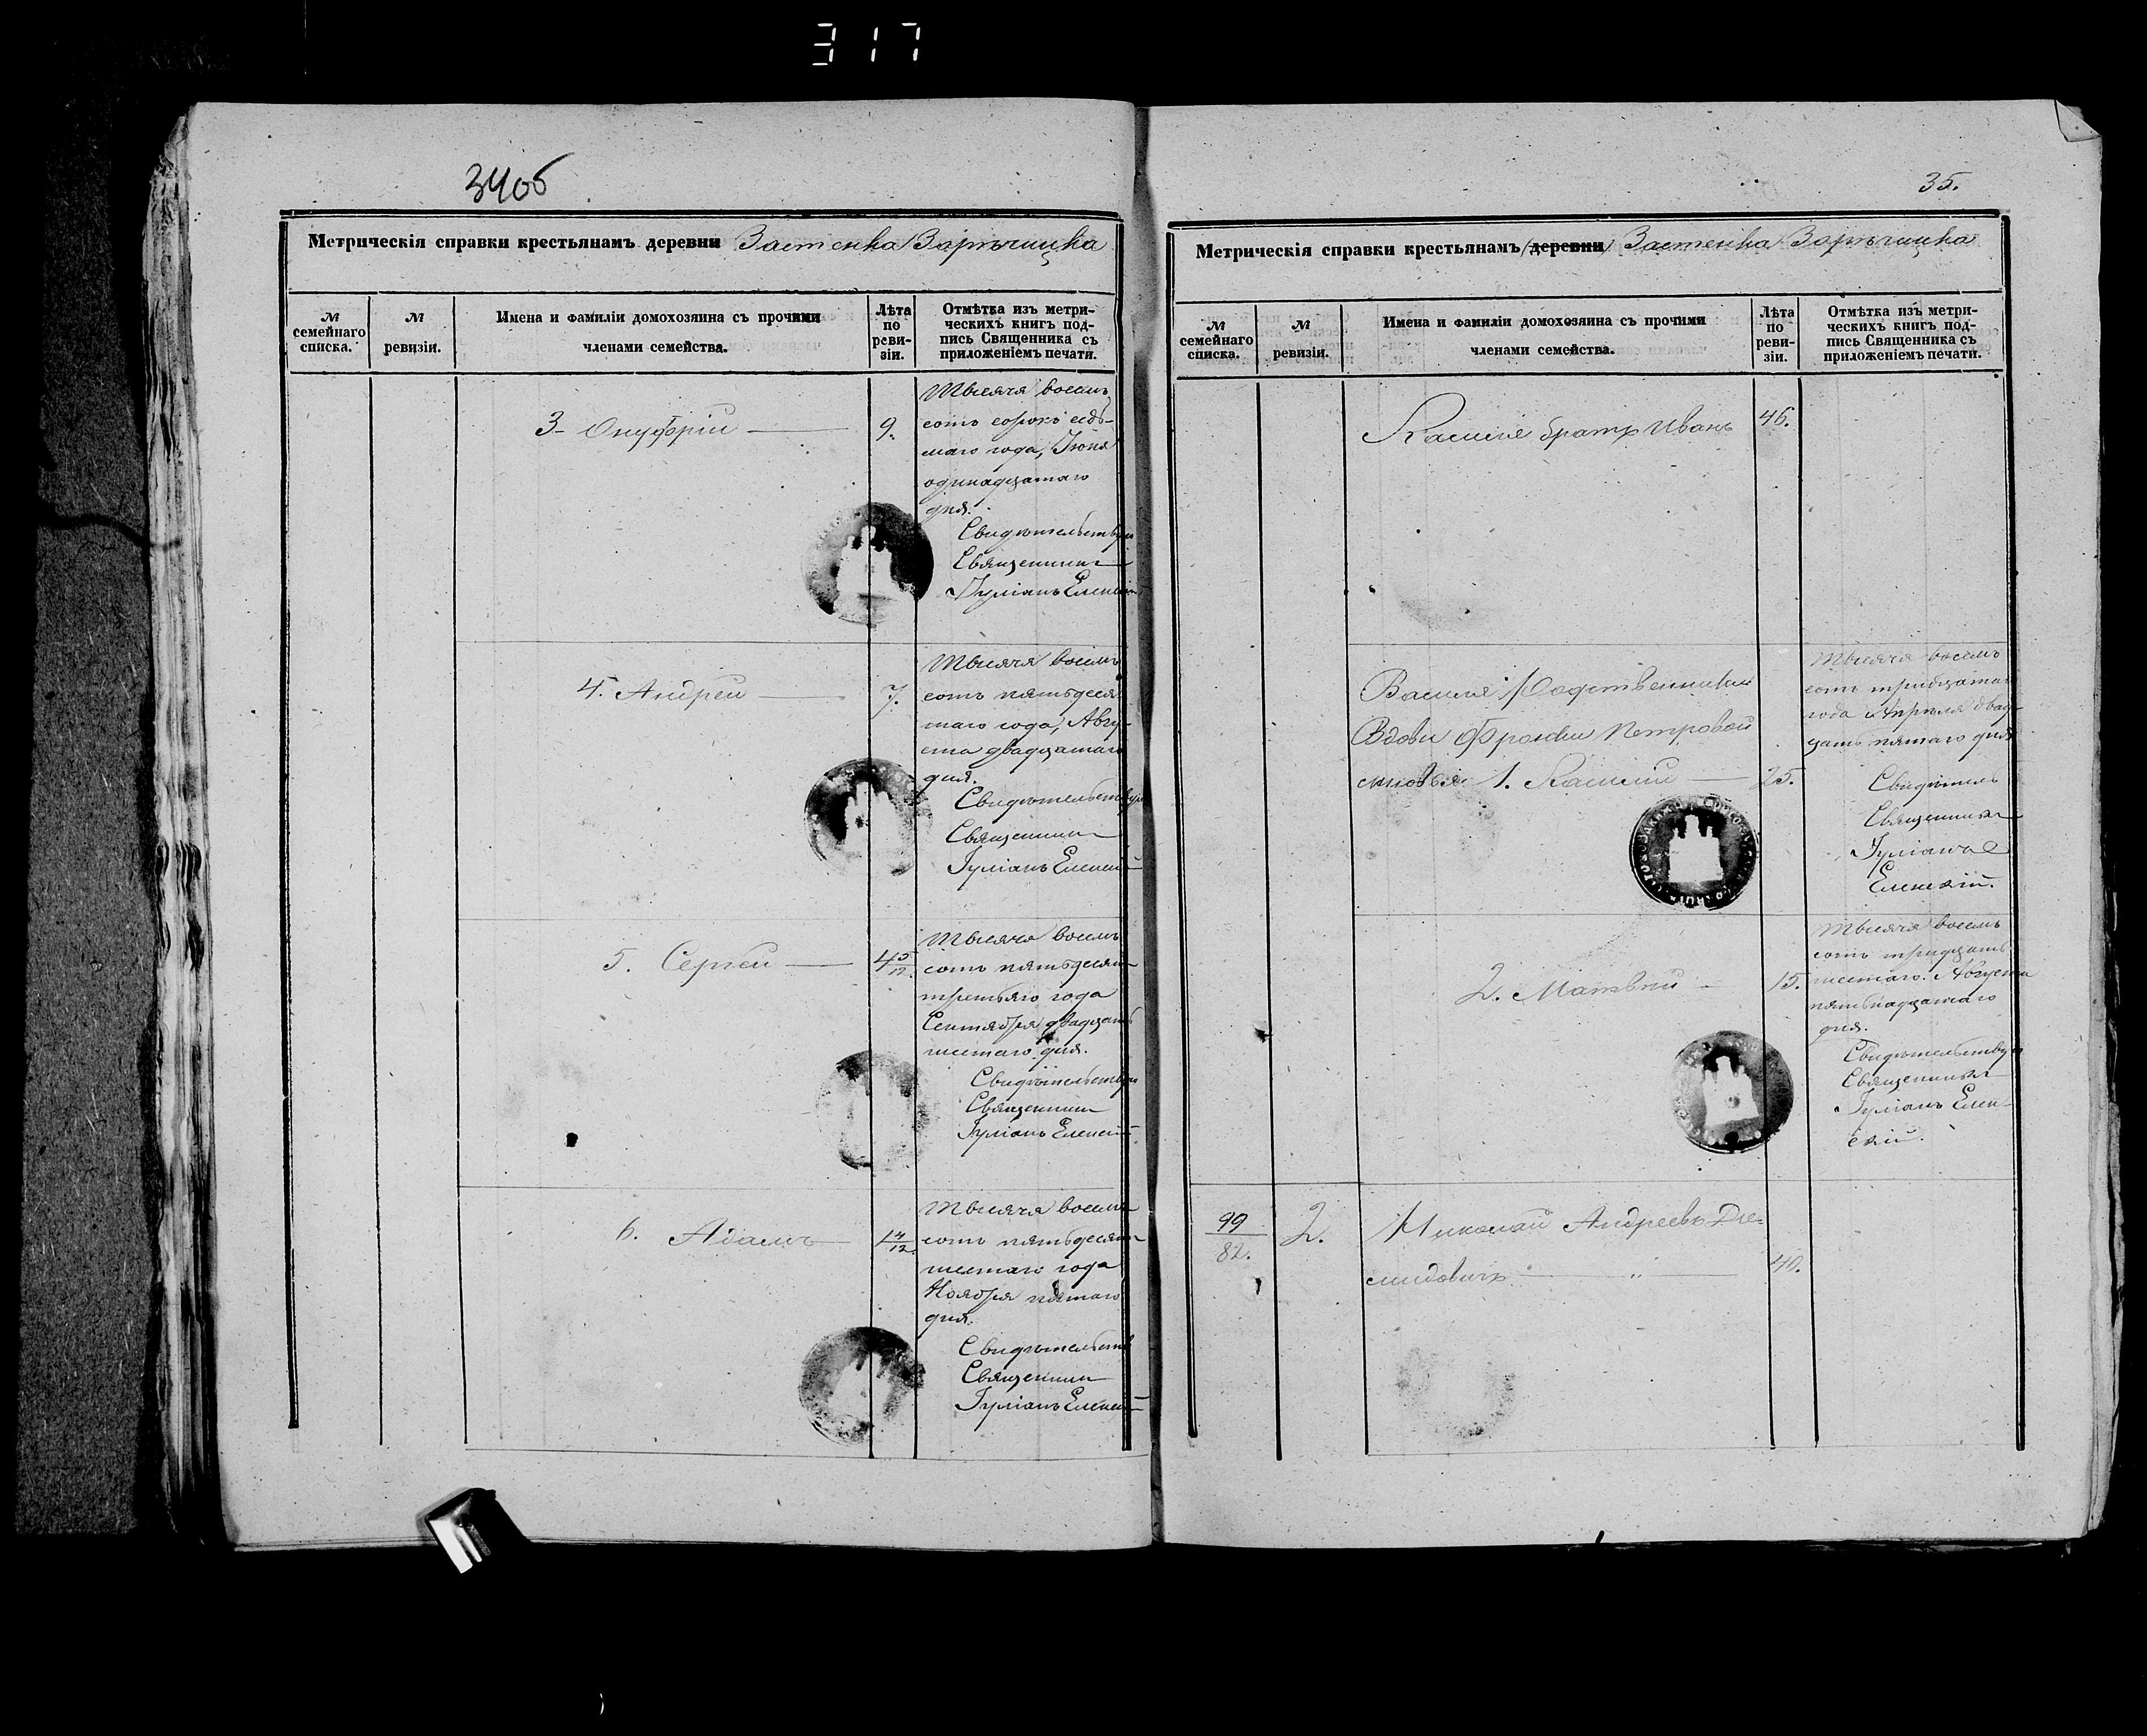 317
34об
Метрическія справки крестьянамъ деревни Застенка Зарѣчицка
№ семейнаго списка.
№ ревизіи.
Имена и фамиліи домохозяина съ прочими членами семейства.
Лѣта по реви-зіи.
Отмѣтка изъ метри-
ческихъ книгъ под-
пись Священника съ
приложеніемъ печати.
3- Онуфрій 9.
Тысяча восемь
сотъ сорокъ седь-
маго года, Іюня
одинадцатаго
дня.
Свидѣтельствую
Священникъ
Іуліанъ Еленскій
4. Андрей 7.
Тысяча восемь
сотъ пятьдеся
таго года, Авгу-
ста двадцатаго
дня.
Свидѣтельствую
Священникъ
Іуліанъ Еленскій
5. Сергей 4 5/12.
Тысяча восемь
сотъ пятьдесятъ
третьяго года
Сентября двадцать
шестаго дня.
Свидѣтельствую
Священникъ
Іуліанъ Еленскій
6. Адамъ 1 4/12.
Тысяча восемь
сотъ пятьдесятъ
шестаго года
Ноября пятаго
дня.
Свидѣтельств
Священникъ
Іуліанъ Еленскій
35.
Метрическія справки крестьянамъ деревни Застенка Зарѣчицка
№ семейнаго списка.
№ ревизіи.
Имена и фамиліи домохозяина съ прочими членами семейства.
Лѣта по реви-зіи.
Отмѣтка изъ метри-
ческихъ книгъ под-
пись Священника съ
приложеніемъ печати.
братъ Иванъ 46.
Вдовы Петровой
сыновья 1. 25.
Тысяча восемь
сотъ тридцатаго
года Апрѣля двад-
цать пятаго дня
Свидѣтель
Священникъ
Іуліанъ
Еленскій.
2. Матвѣй 15.
Тысяча восемь
сотъ тридцать
шестаго. Августа
пятьнадцатаго
дня.
Свидѣтельствую
Священникъ
Іуліанъ Елен-
скій.
99/82. 2. Николай Андреевъ Де-
мидовичъ " 40.